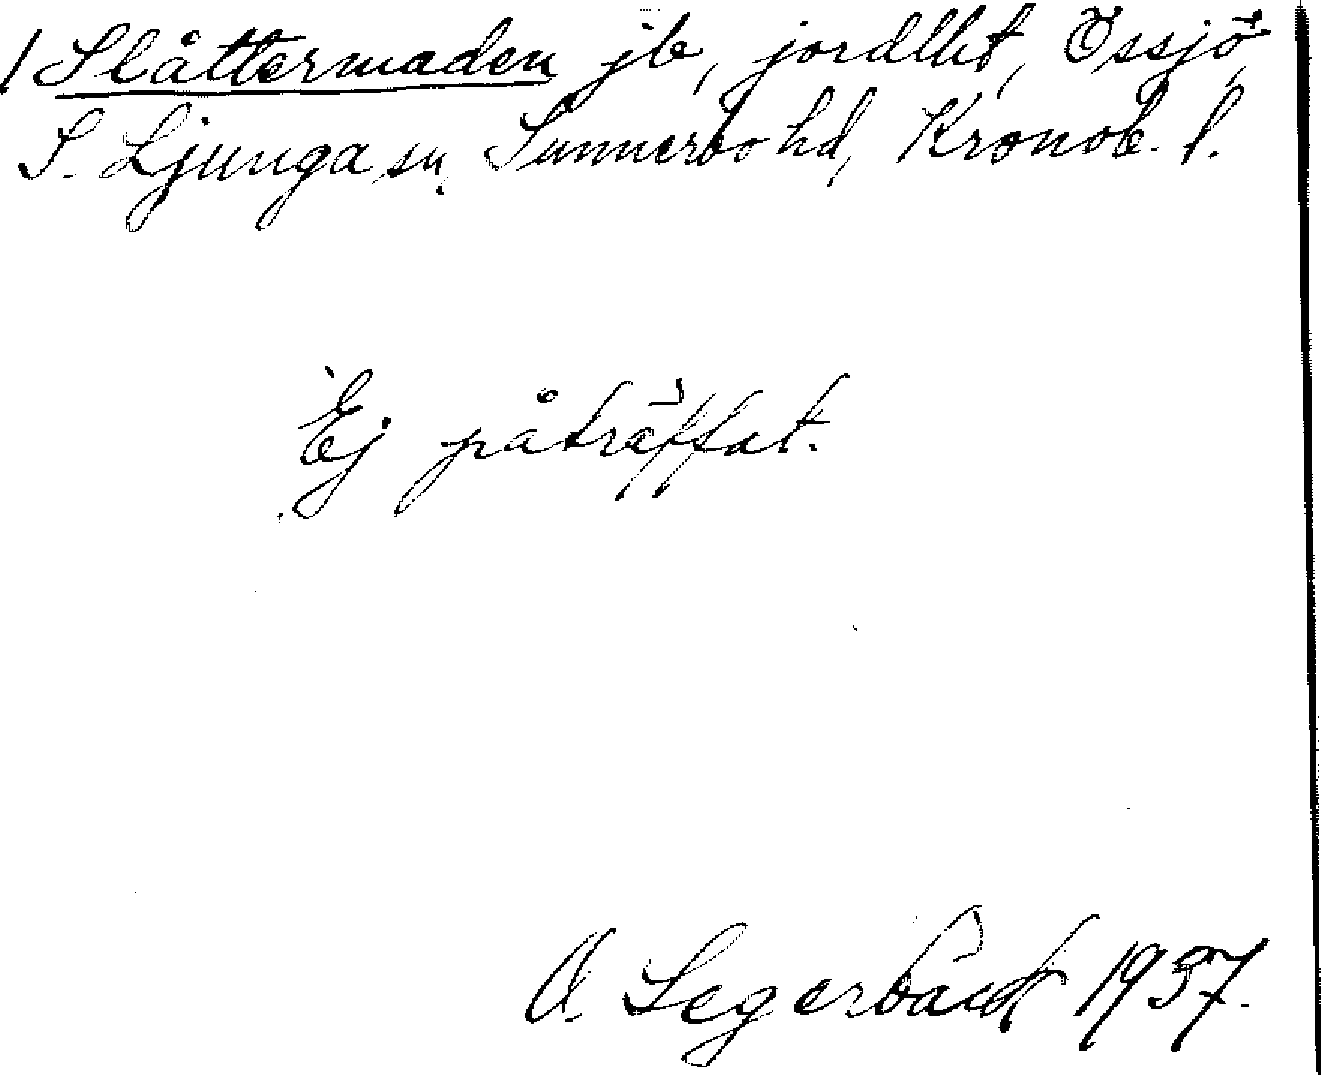 / Slåttermaden jb, jordlht, Össjö,
S. Ljunga sn, Sunnerbo hd, Kronob. l.
Ej påträffat.
O. Segerbäck 1937.